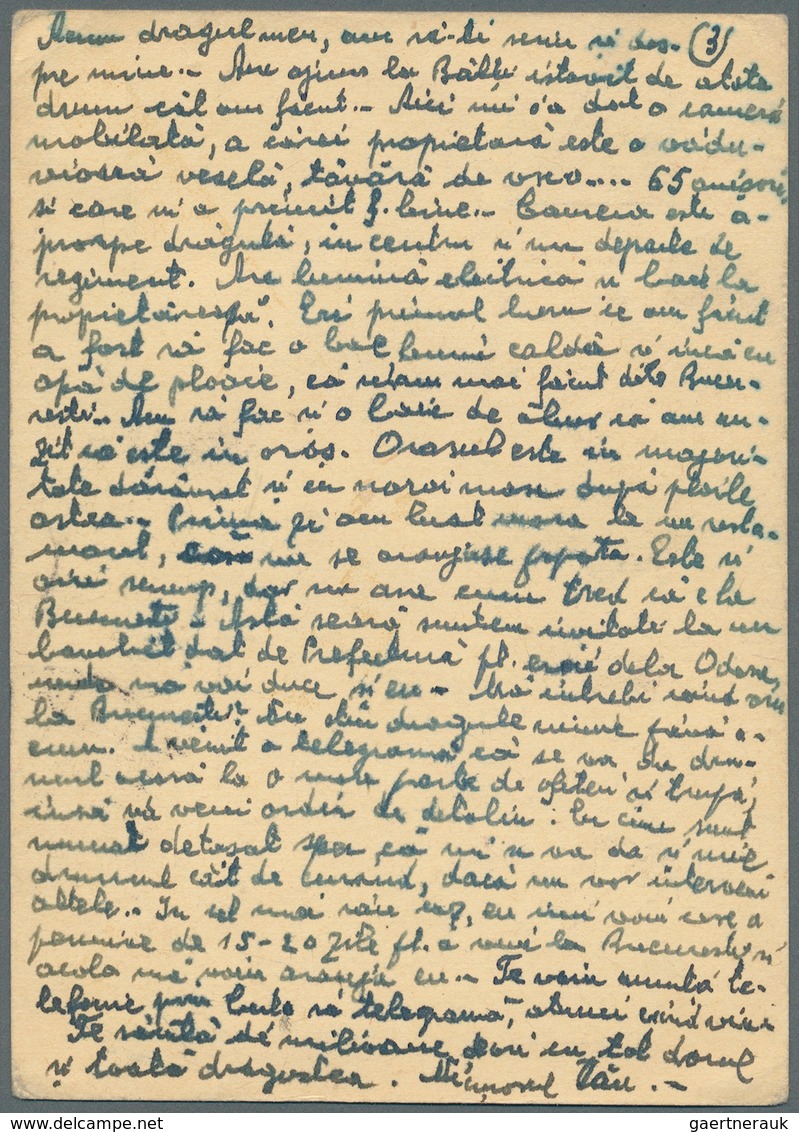 Acum dragul meu, am să-ți scriu și des- (3)
pre mine.- Am ajuns la Bălți istovit de atâta
drum cât am făcut.- Aici mi s'a dat o cameră
mobilată, a cărei propietară este o vădu-
vioară veselă, tânără de vreo.... 65 anișori,
și care m'a primit f. bine.- Camera este a-
proape drăguță, în centru și nu departe de
regiment. Are lumină electrică și baie la
propietăreasă. Eri primul lucru ce am făcut
a fost să fac o baie bună caldă și încă cu
apă de ploaie, că nu am mai făcut dela Bucu-
rești.- Am să fac și o baie de abur că am au-
zit că este în oraș. Orașul este în majori-
tate dărâmat și cu noroi mare după ploile
astea.- Prima zi am luat masa la un resta-
urant, nu se aranjase popota. Este și
aici scump, dar nu așa cum cred că e la
București.- Astă seară suntem invitați la un
banchet dat de Prefectură pt. eroii dela Odesa,
unde mă voi duce și eu.- Mă întrebi când viu
la București? Nu știu dragule nimic până a-
cum. A venit o telegramă că se va da dru-
mul acasă la o mare parte de ofițeri și trupă,
însă va veni ordin de detaliu. Eu cum sunt
numai detașat sper că mi se va da și mie
drumul cât de curând, dacă nu vor interveni
altele.- În cel mai rău caz, eu îmi voi cere o
permisie de 15-20 zile pt. a veni la București și
acolo mă voiu aranja eu.- Te voiu anunța te-
lefonic prin Puto sau telegramă, atunci când viu
Te sărută de milioane de ori cu tot dorul
și toată dragostea. Mițișorul Tău.-
gaertnerauk